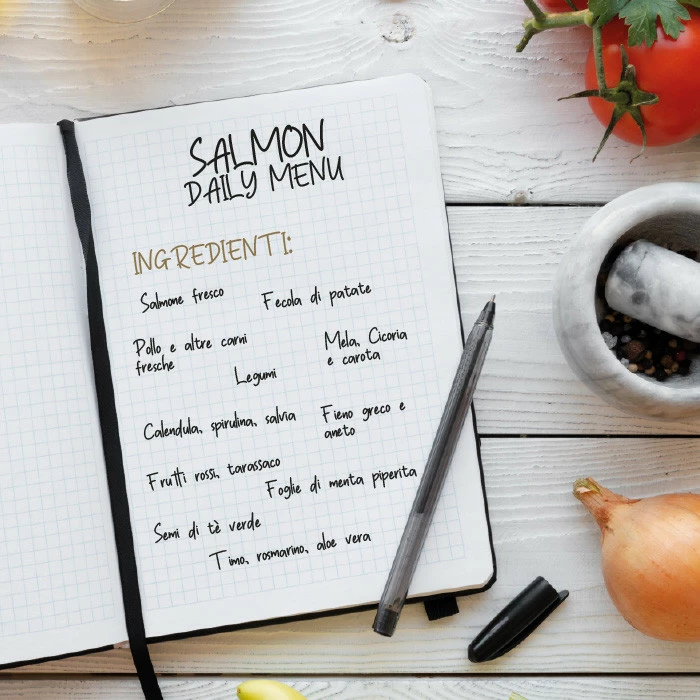 SALMON
DAILY MENU
INGREDIENTI:
Salmone fresco
Fecola di patate
Pollo e altre carni
fresche
Mela, Cicoria
e carota
Legumi
Calendula, spirulina, salvia
Fieno greco e
aneto
Frutti rossi, tarassaco
Foglie di menta piperita
Semi di tè verde
Timo, rosmarino, aloe vera